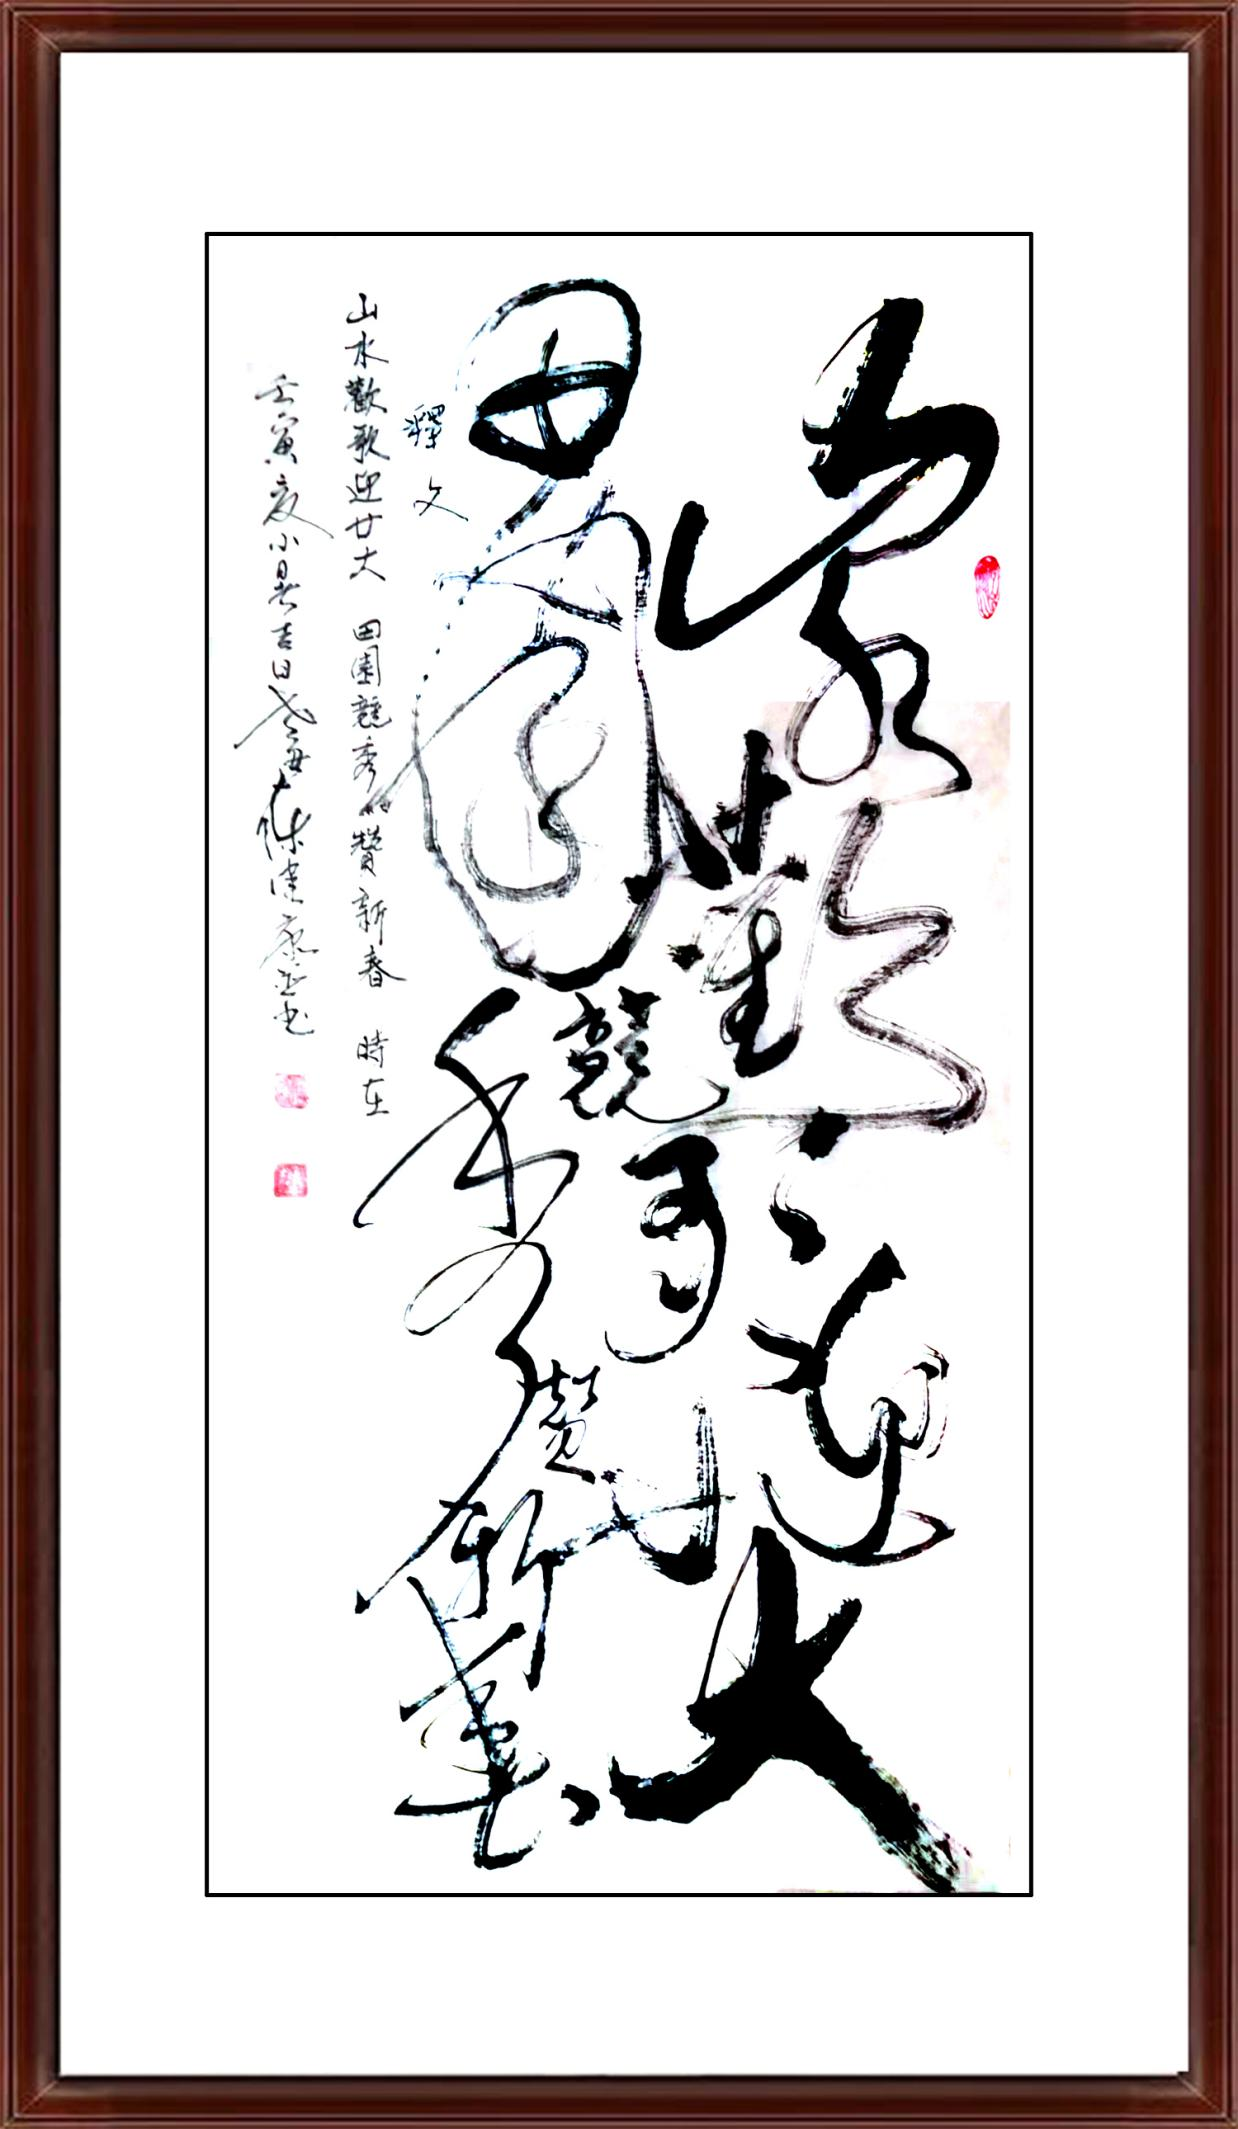 山水歡歌迎廿大
田園競秀贊新春
釋文
山水歡歌迎廿大 田園競秀贊新春 時在
壬寅夏小暑吉日 陳 书